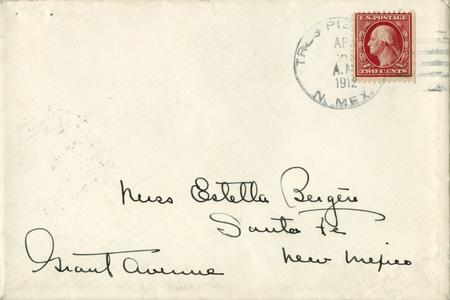 TRES PI
AP
A.M.
1912
N. MEX.
U.S. POSTAGE
TWO CENTS
Miss Estella Bergère
Santa Fe
New Mexico
Grant Avenue